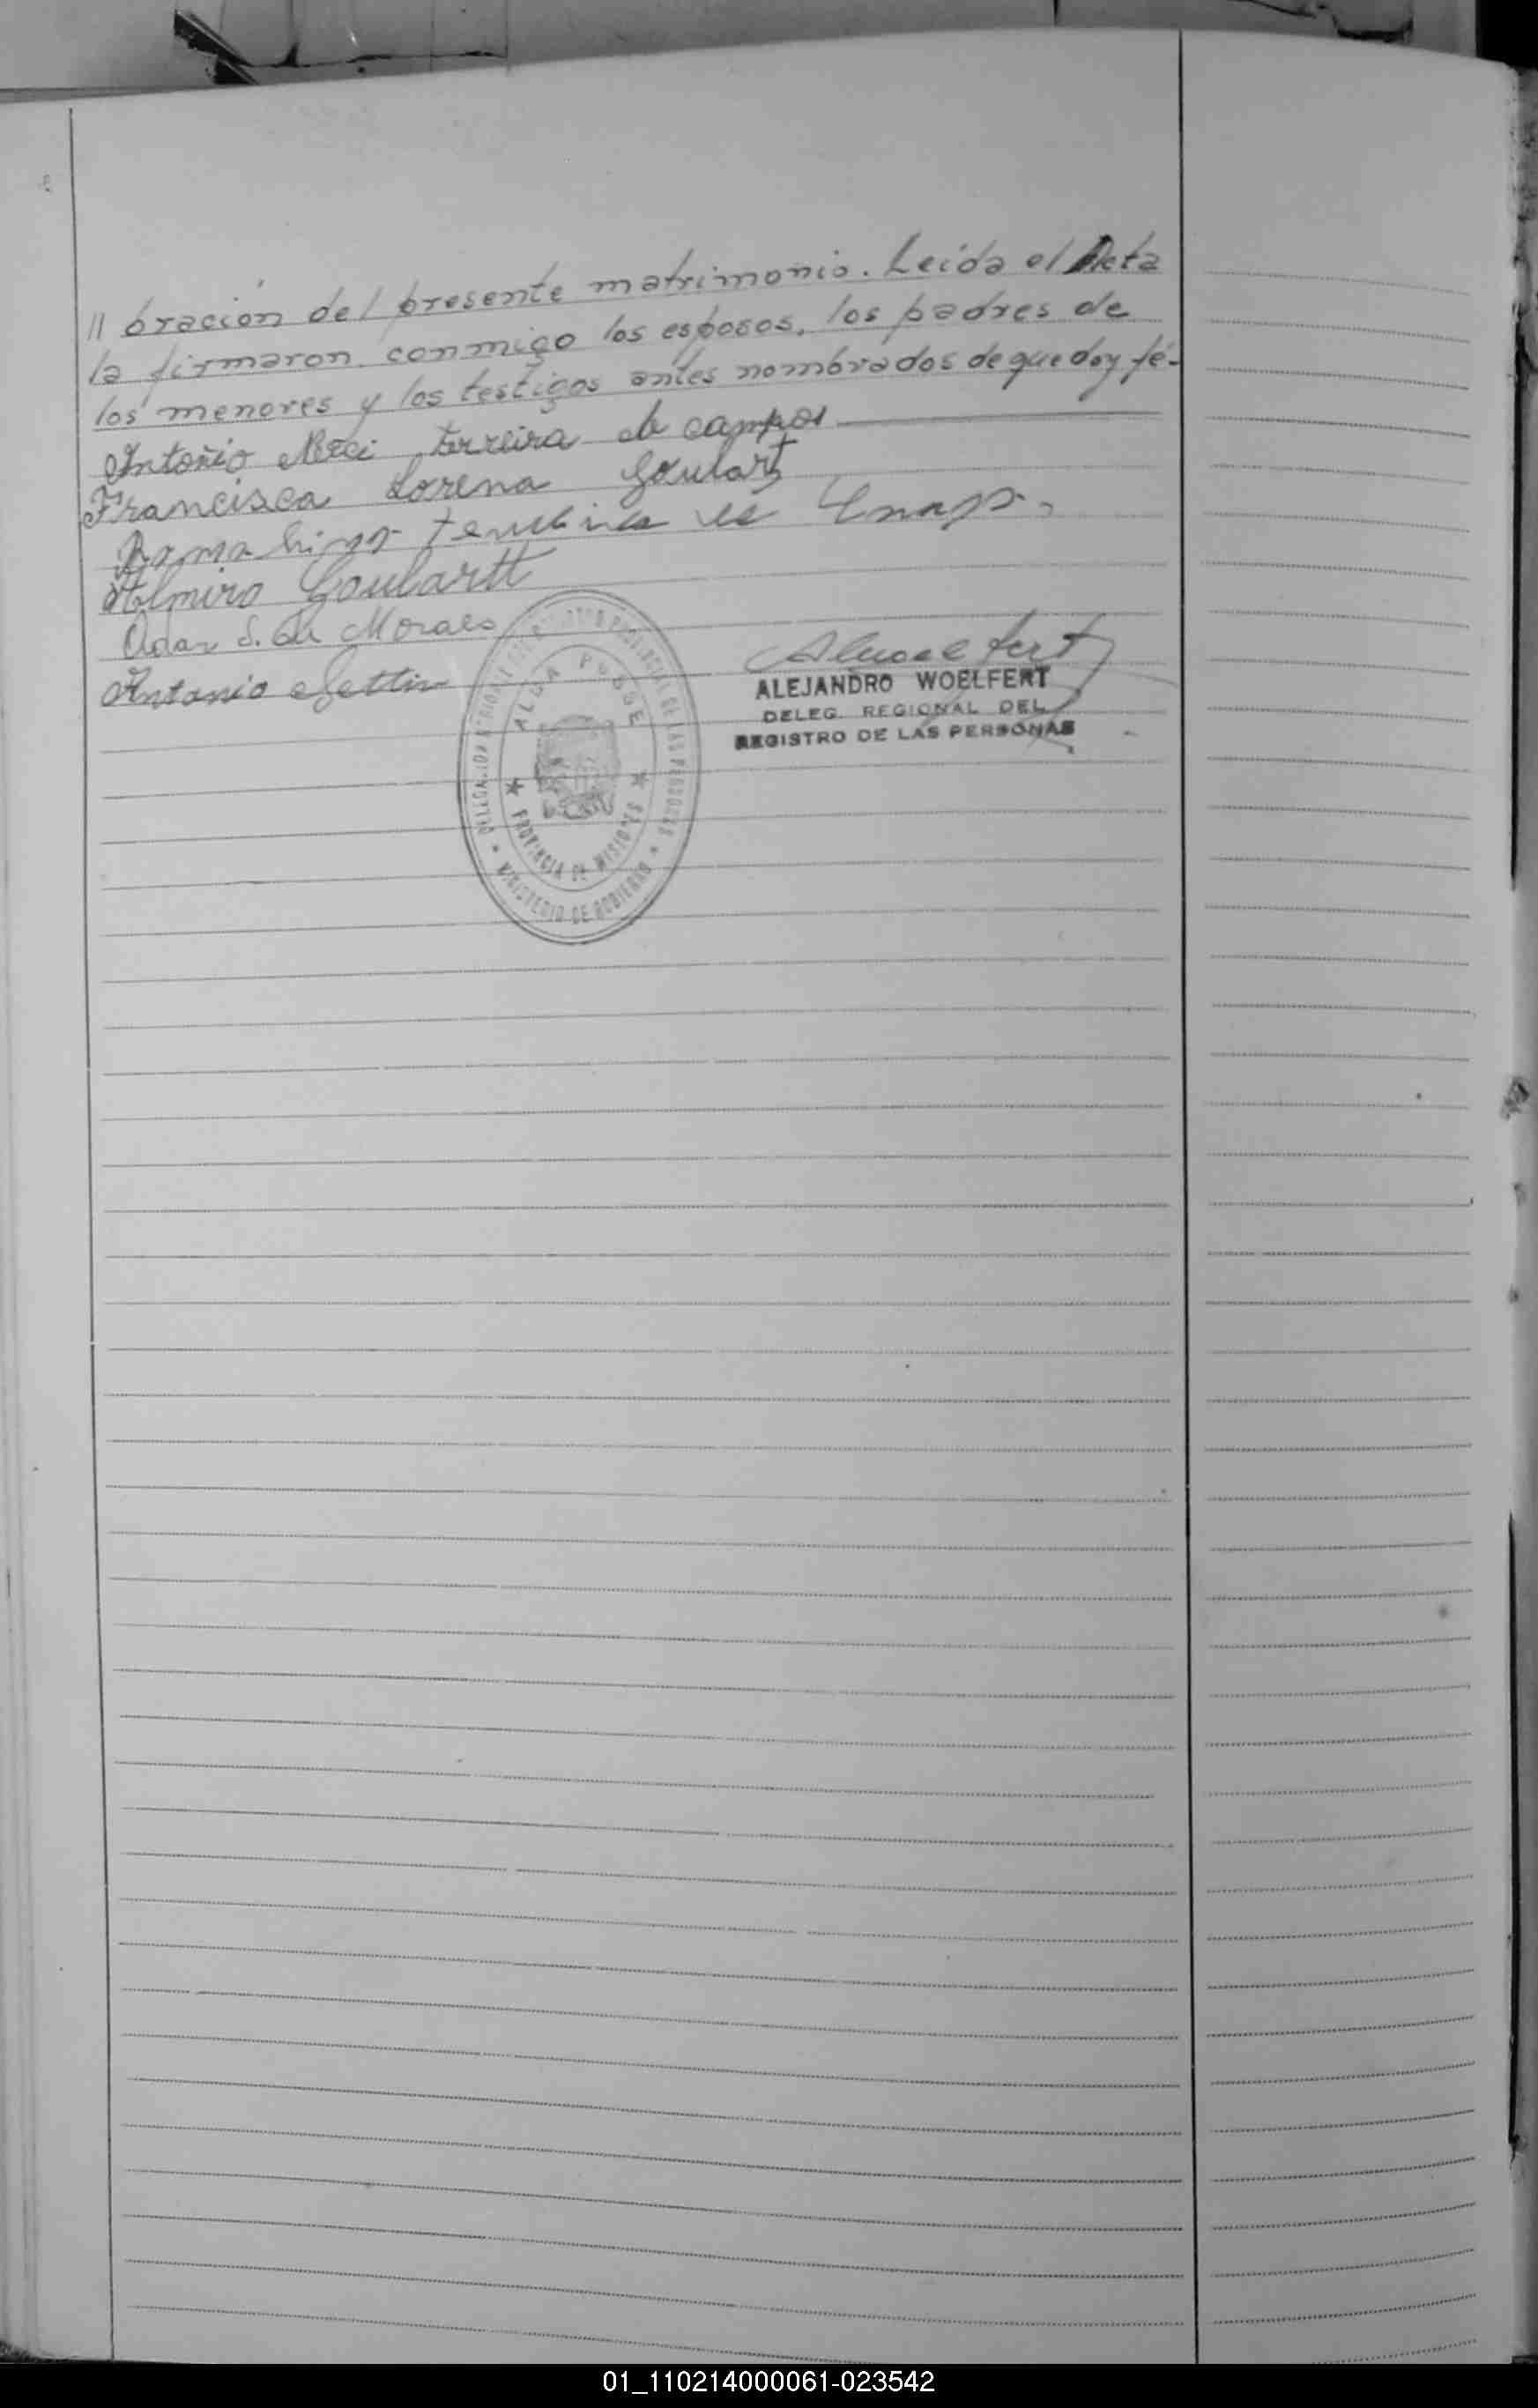 // bración del presente matrimonio. Leída el Acta
la firmaron conmigo los esposos, los padres de
los menores y los testigos antes nombrados de que doy fé.-
Antonio Ferreira de campos
Francisca Lorena Goulart
de
Almiro Goulartt
Adan S. de Moraes
Antonio
ALEJANDRO WOELFERT
DELEG. REGIONAL DEL
REGISTRO DE LAS PERSONAS
DE LAS PERSONAS
ALBA POSSE
PROVINCIA DE MISIONES
MINISTERIO DE GOBIERNO
01_110214000061-023542